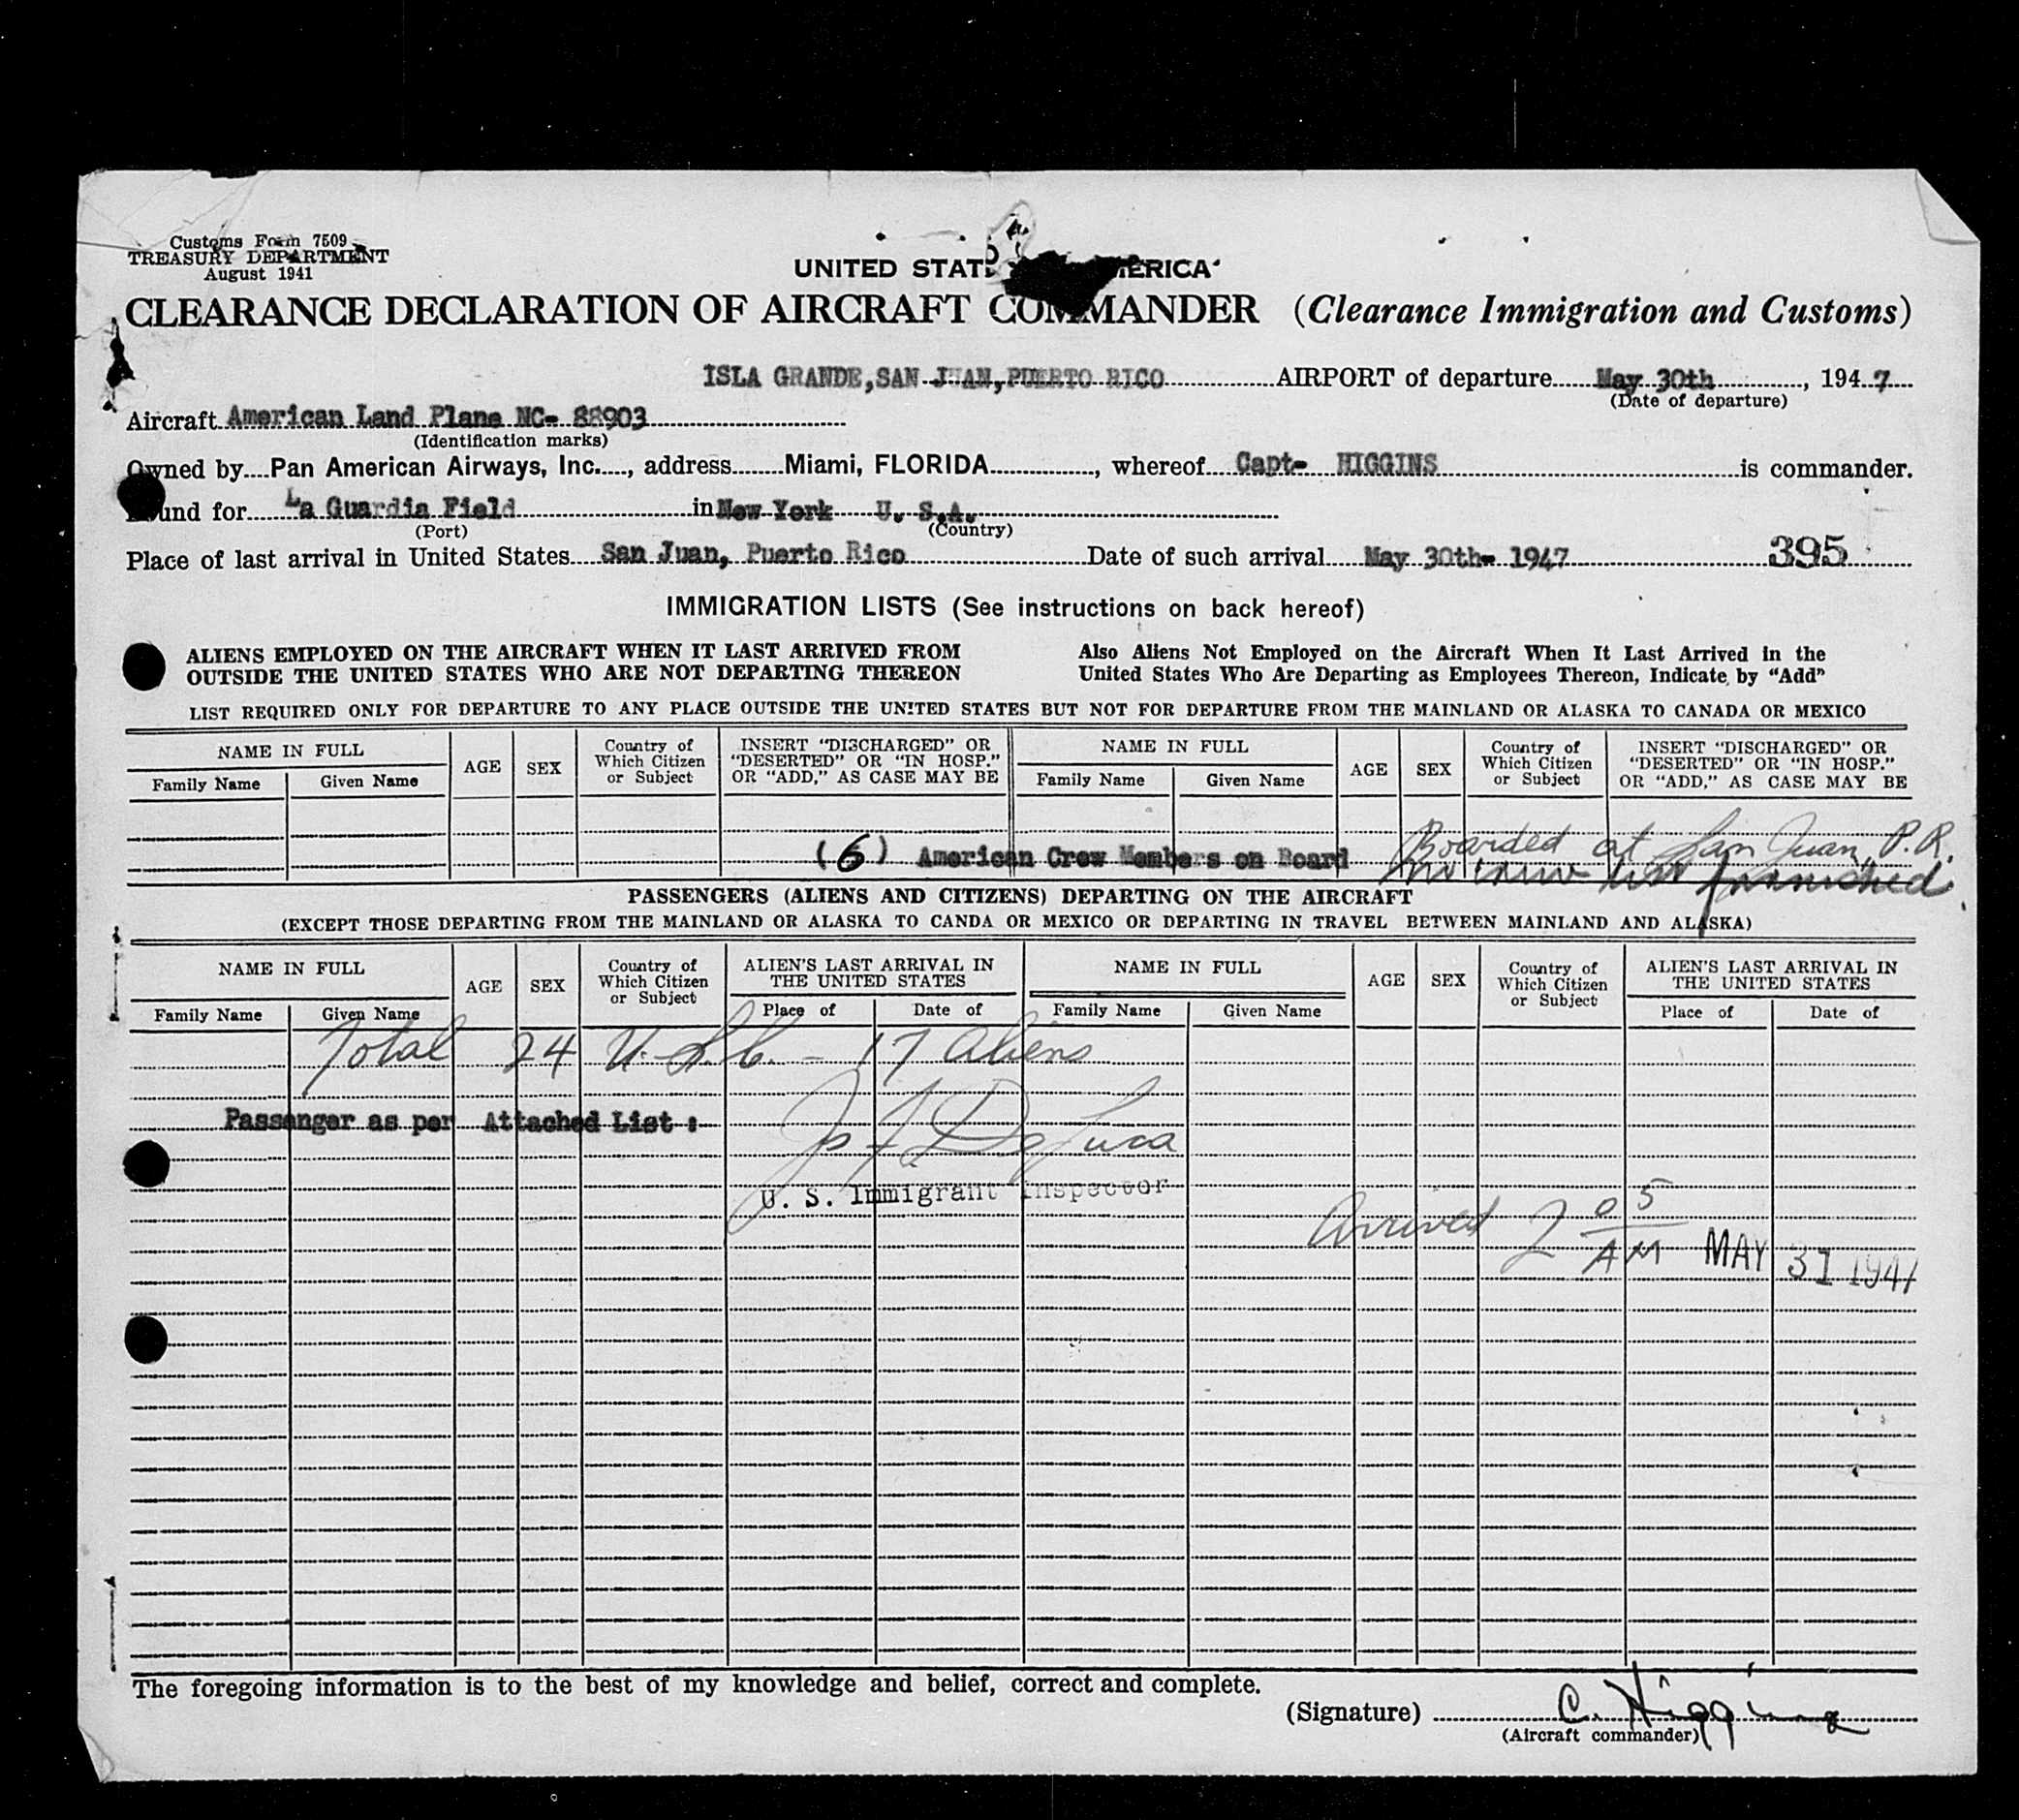 Customs Form 7509
TREASURY DEPARTMENT
August 1941
UNITED STAT ERICA
CLEARANCE DECLARATION OF AIRCRAFT COMMANDER (Clearance Immigration and Customs)
ISLA GRANDE, SAN JUAN, PUERTO RICO AIRPORT of departure May 30th, 1947
(Date of departure)
Aircraft American Land Plane NC- 88903
(Identification marks)
Owned by Pan American Airways, Inc., address Miami, FLORIDA, whereof Capt- HIGGINS is commander.
ound for La Guardia Field in New York U. S.A.
(Port) (Country)
Place of last arrival in United States San Juan, Puerto Rico Date of such arrival May 30th- 1947 395
IMMIGRATION LISTS (See instructions on back hereof)
ALIENS EMPLOYED ON THE AIRCRAFT WHEN IT LAST ARRIVED FROM
OUTSIDE THE UNITED STATES WHO ARE NOT DEPARTING THEREON
Also Aliens Not Employed on the Aircraft When It Last Arrived in the
United States Who Are Departing as Employees Thereon, Indicate by "Add"
LIST REQUIRED ONLY FOR DEPARTURE TO ANY PLACE OUTSIDE THE UNITED STATES BUT NOT FOR DEPARTURE FROM THE MAINLAND OR ALASKA TO CANADA OR MEXICO
NAME IN FULL
Family Name Given Name
AGE
SEX
Country of
Which Citizen
or Subject
INSERT "DISCHARGED" OR
"DESERTED" OR "IN HOSP."
OR "ADD," AS CASE MAY BE
NAME IN FULL
Family Name Given Name
AGE
SEX
Country of
Which Citizen
or Subject
INSERT "DISCHARGED" OR
"DESERTED" OR "IN HOSP."
OR "ADD," AS CASE MAY BE
(6) American Crew Members on Board
Boarded at San Juan, P.R.
furnished
PASSENGERS (ALIENS AND CITIZENS) DEPARTING ON THE AIRCRAFT
(EXCEPT THOSE DEPARTING FROM THE MAINLAND OR ALASKA TO CANDA OR MEXICO OR DEPARTING IN TRAVEL BETWEEN MAINLAND AND ALASKA)
NAME IN FULL
Family Name Given Name
AGE
SEX
Country of
Which Citizen
or Subject
ALIEN'S LAST ARRIVAL IN
THE UNITED STATES
Place of Date of
NAME IN FULL
Family Name Given Name
AGE
SEX
Country of
Which Citizen
or Subject
ALIEN'S LAST ARRIVAL IN
THE UNITED STATES
Place of Date of
Total 24 U.S.C. - 17 aliens
Passenger as per Attached List :
DeLuca
U. S. Immigrant Inspector
Arrived 2 05 AM MAY 31 1947
The foregoing information is to the best of my knowledge and belief, correct and complete.
(Signature) C. Higgins
(Aircraft commander)